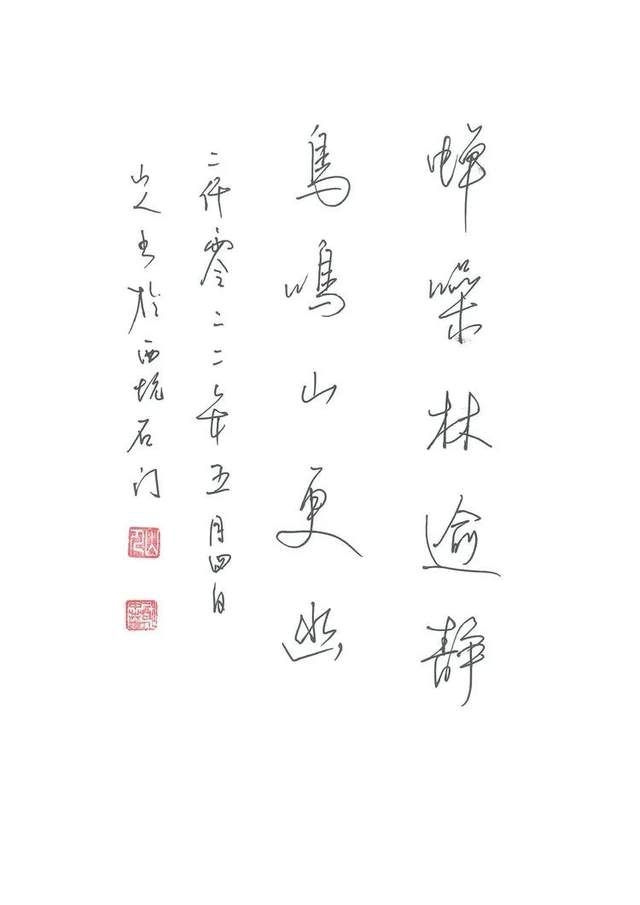 蝉噪林逾静
鳥鳴山更幽
二仟零二二年五月四日
山人书於西坑石门